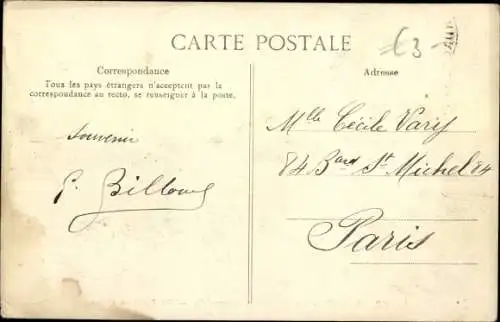 CARTE POSTALE
Correspondance
Tous les pays étrangers n'acceptent pas la
correspondance au recto, se renseigner à la poste.
Adresse
souvenir
Mlle Cécile
84 Bard St Michel 84
Paris